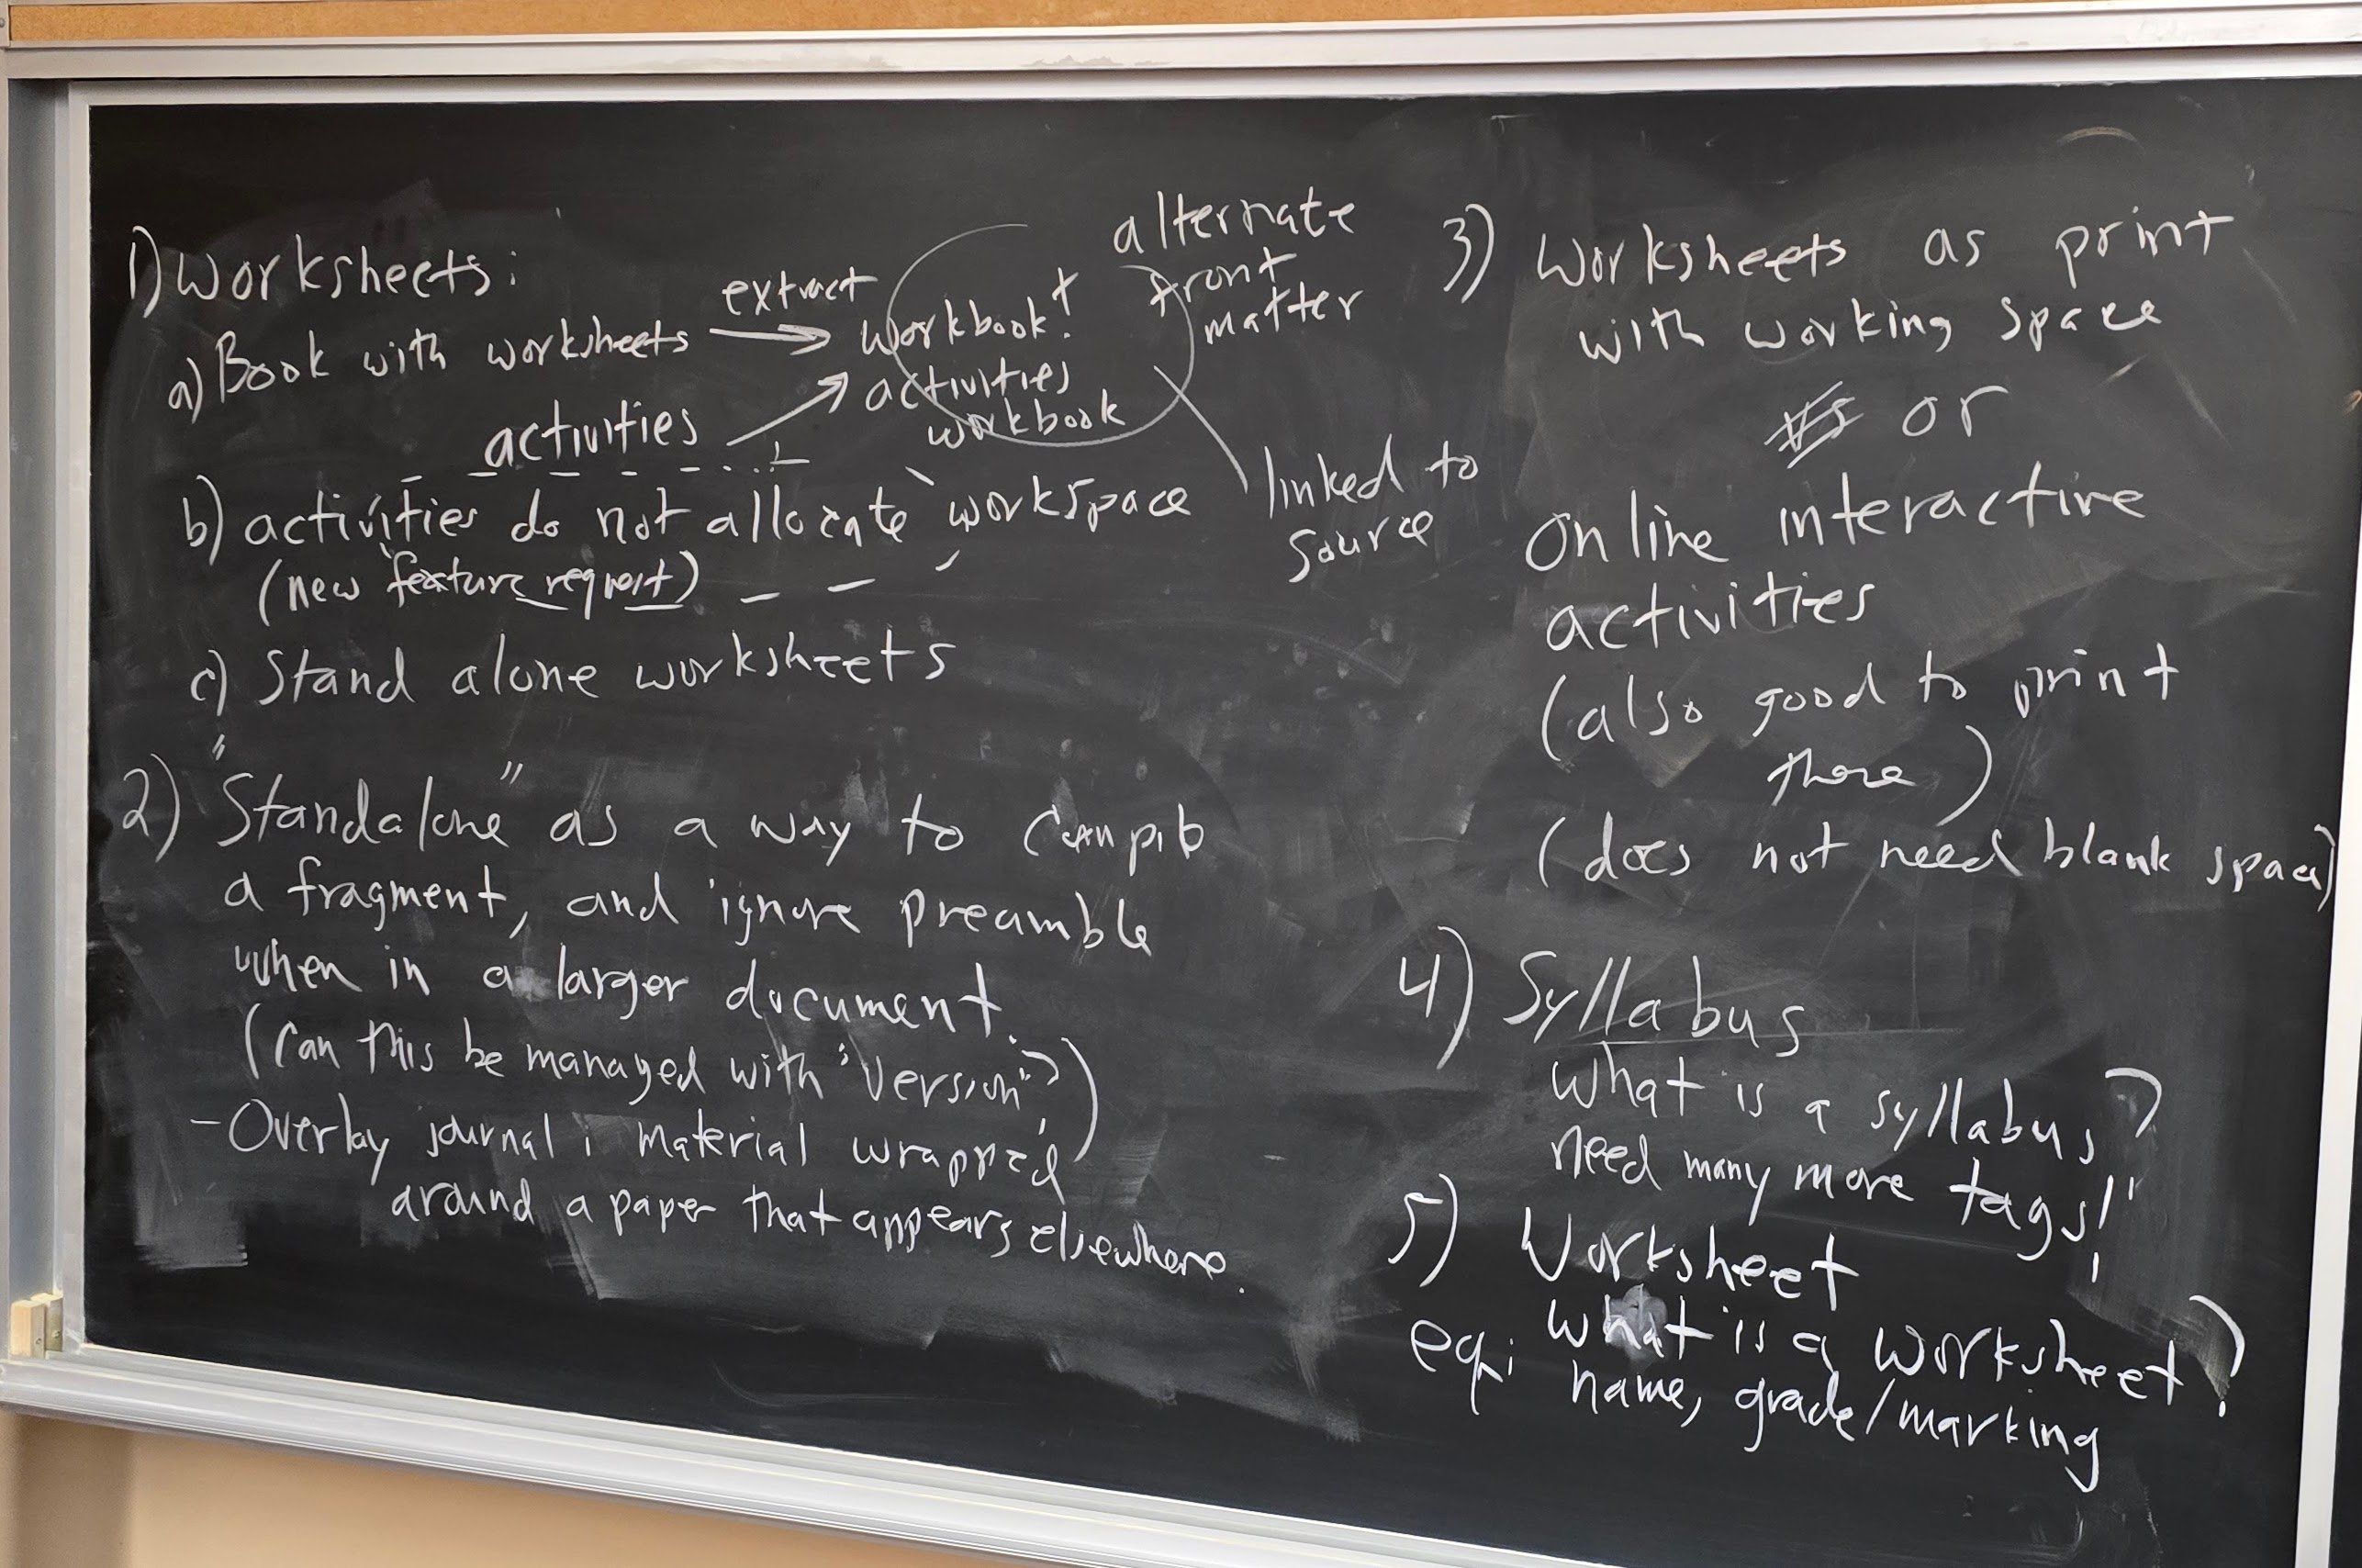 1) Worksheets:
a) Book with worksheets
extract
workbook!
alternate
front
matter
activities
activities
workbook
linked to
source
b) activities do not allocate workspace
(new feature request)
c) Stand alone worksheets
2) "Standalone" as a way to compile
a fragment, and ignore preamble
when in a larger document.
(Can this be managed with "version"?)
- Overlay journal: material wrapped
around a paper that appears elsewhere.
3) Worksheets as print
with working space
or
Online interactive
activities
(also good to print
these)
(does not need blank space)
4) Syllabus
What is a syllabus?
need many more tags!
5) Worksheet
What is a worksheet?
eg: name, grade/marking